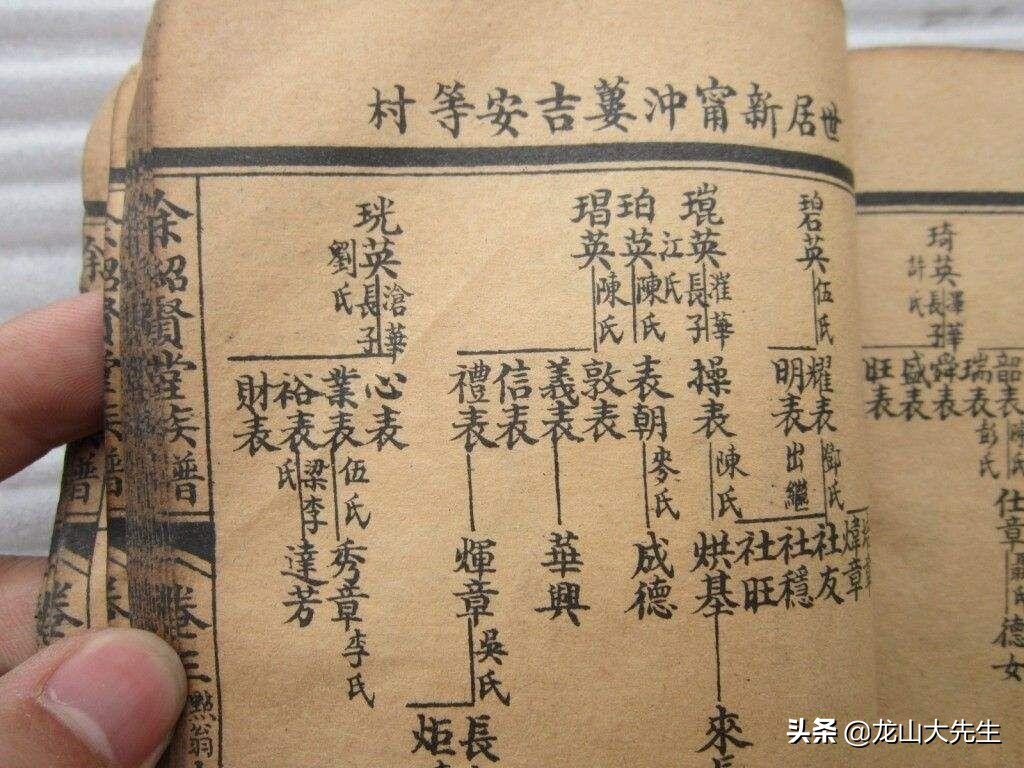 世居新甯沖蔞吉安等村
琦英
計氏
澤華長子
韶表
瑞表
彭氏
舜表
盛表
旺表
仕章
德女
碧英
伍氏
琨英
江氏
漼華長子
珀英
陳氏
琩英
陳氏
珖英
劉氏
滄華長子
耀表
鄧氏
明表
出繼
操表
陳氏
表朝
麥氏
敦表
義表
信表
禮表
心表
業表
伍氏
裕表
梁李氏
財表
煒章
社友
社穩
社旺
烘基
成德
華興
煇章
吳氏
秀章
李氏
達芳
來長
長
炬
余紹賢堂族譜
卷三
頭条 @龙山大先生